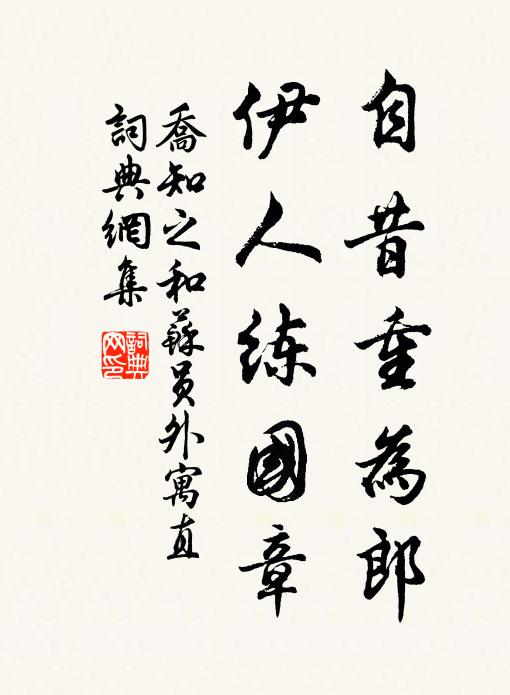 自昔重為郎
伊人練國章
喬知之和蘇員外寓直
詞典網集
詞典
网印